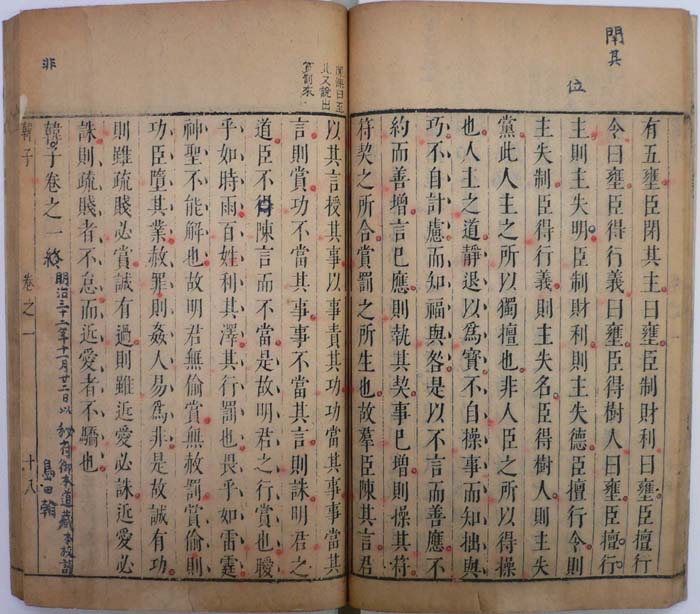 閉其
位
有五壅臣閉其主曰壅臣制財利曰壅臣擅行
令曰壅臣得行義曰壅臣得樹人曰壅臣擅行
主則主失明臣制財利則主失德臣擅行令則
主失制臣得行義則主失名臣得樹人則主失
黨此人主之所以獨擅也非人臣之所以得操
也人主之道靜退以爲寶不自操事而知拙與
巧不自計慮而知福與咎是以不言而善應不
約而善增言已應則執其契事已增則操其符
符契之所合賞罰之所生也故羣臣陳其言君
以其言授其事事以責其功功當其事事當其
言則賞功不當其事事不當其言則誅明君之
道臣不得陳言而不當是故明君之行賞也曖
乎如時雨百姓利其澤其行罰也畏乎如雷霆
神聖不能解也故明君無偷賞無赦罰賞偷則
功臣墮其業赦罪則姦人易爲非是故誠有功
則雖疏賤必賞誠有過則雖近愛必誅近愛必
誅則疏賤者不怠而近愛者不驕也
非
韓子卷之一終
明治三十二年十一月廿二日以
秘府御本道藏本校讀
島田翰
韓子
卷之一
十八